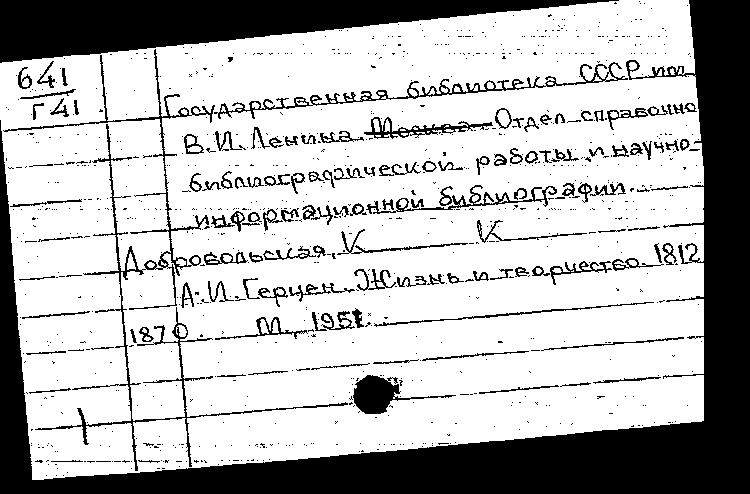 641
Г41
Государственная библиотека СССР им
В.И. Ленина. Москва Отдел справочно
библиографической работы и научно-
информационной библиографии.
Добровольская, К К
А.И. Герцен. Жизнь и творчество. 1812
1870. М., 1951.